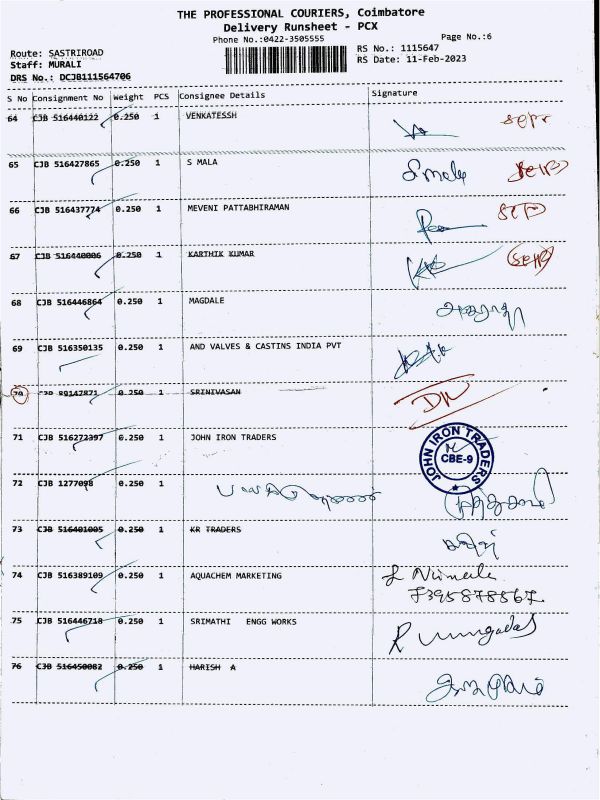 THE PROFESSIONAL COURIERS, Coimbatore
Delivery Runsheet - PCX
Phone No.:0422-3505555
Page No.:6
Route: SASTRIROAD
RS No.: 1115647
Staff: MURALI
RS Date: 11-Feb-2023
DRS No.: DCJB111564706
S No Consignment No Weight PCS Consignee Details Signature
64 CJB 516440122 0.250 1 VENKATESSH
65 CJB 516427865 0.250 1 S MALA S mala
66 CJB 516437774 0.250 1 MEVENI PATTABHIRAMAN
67 CJB 516440006 0.250 1 KARTHIK KUMAR
68 CJB 516446864 0.250 1 MAGDALE
69 CJB 516350135 0.250 1 AND VALVES & CASTINS INDIA PVT
70 CJB 89147871 0.250 1 SRINIVASAN DN
71 CJB 516272397 0.250 1 JOHN IRON TRADERS
JOHN IRON TRADERS
CBE-9
72 CJB 1277098 0.250 1
73 CJB 516401005 0.250 1 KR TRADERS
74 CJB 516389109 0.250 1 AQUACHEM MARKETING
7395878567
75 CJB 516446718 0.250 1 SRIMATHI ENGG WORKS
76 CJB 516450082 0.250 1 HARISH A